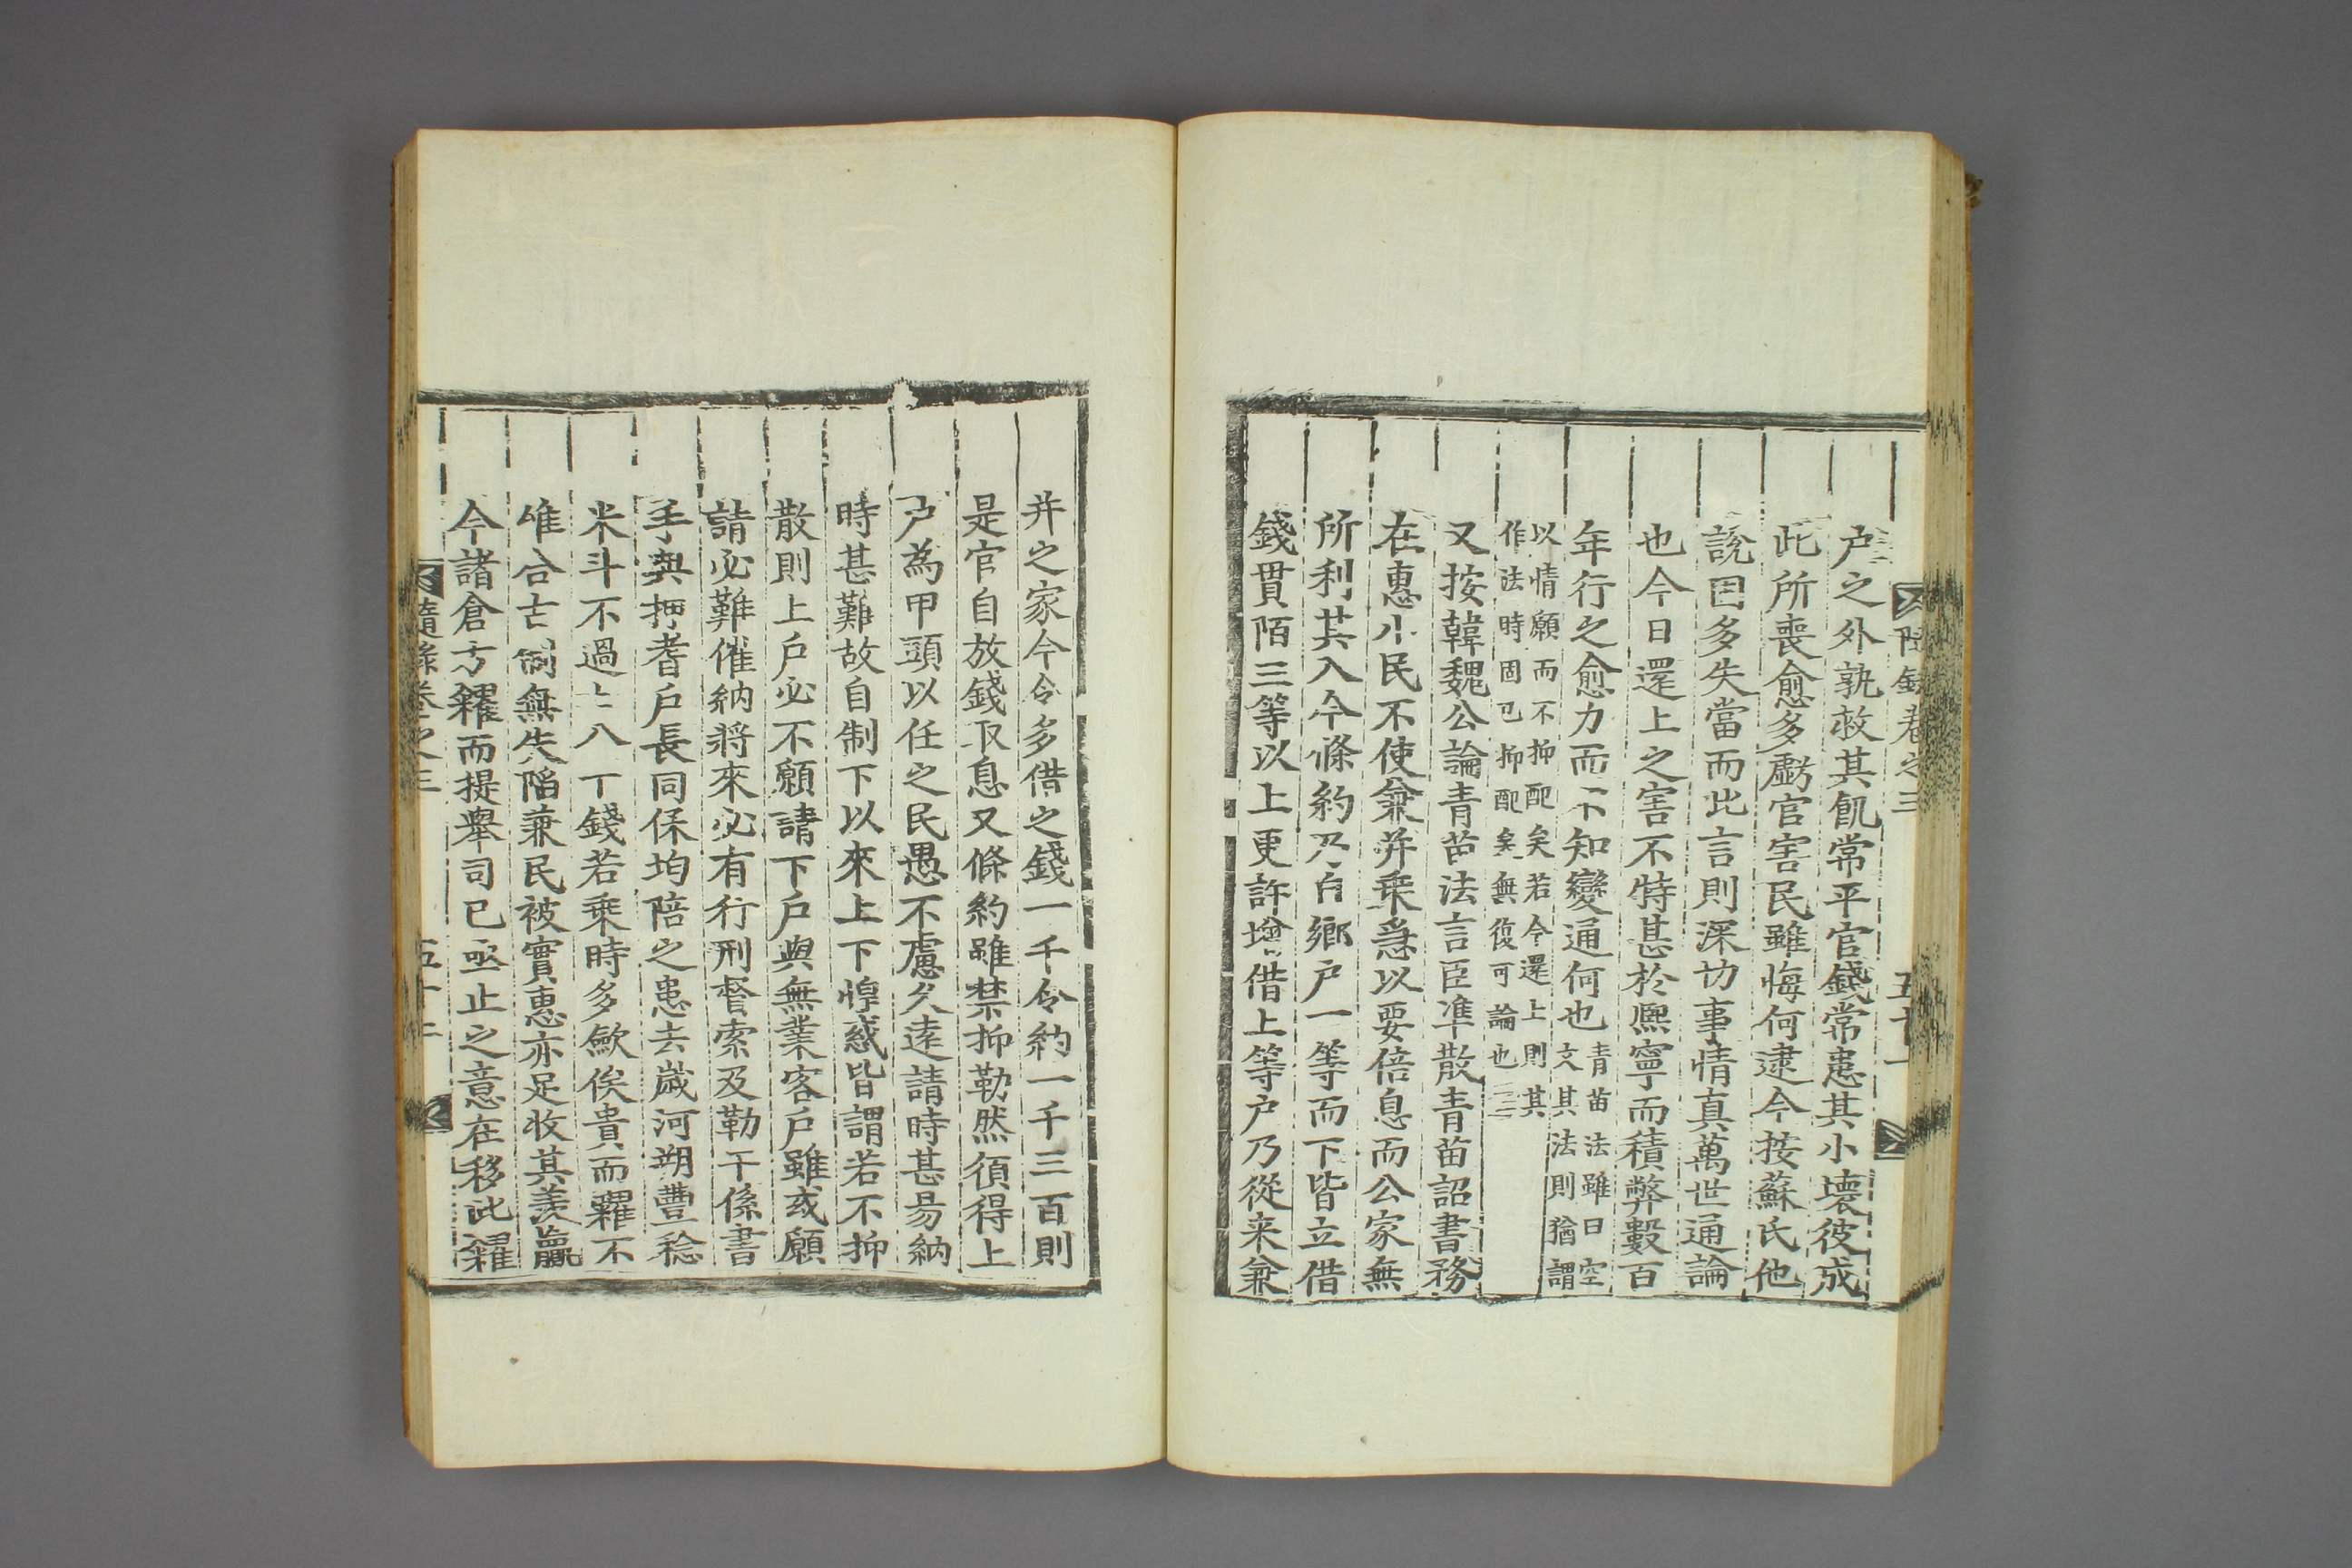 隨錄卷之三 五十一
戶之外孰救其飢常平官錢常患其小壞彼成
此所喪愈多虧官害民雖悔何逮今按蘇氏他
說固多失當而此言則深切事情真萬世通論
也今日還上之害不特甚於熙寧而積弊數百
年行之愈力而不知變通何也
青苗法雖曰空
文其法則猶謂
以情願而不抑配矣若今還上則其
作法時固已抑配矣無復可論也
又按韓魏公論青苗法言臣準散青苗詔書務
在惠小民不使兼并乘急以要倍息而公家無
所利其入今條約乃自鄉戶一等而下皆立借
錢貫陌三等以上更許增借上等戶乃從来兼
并之家今令多借之錢一千令約一千三百則
是官自放錢取息又條約雖禁抑勒然須得上
戶為甲頭以任之民愚不慮久遠請時甚易納
時甚難故自制下以來上下惶惑皆謂若不抑
散則上戶必不願請下戶與無業客戶雖或願
請必難催納將來必有行刑督索及勒干係書
手典押耆戶長同保均陪之患去歲河朔豊稔
米斗不過七八丁錢若乘時多斂俟貴而糶不
唯合古制無失陷兼民被實惠亦足收其羡贏
今諸倉方糴而提擧司已亟止之意在移此糴
隨錄卷之三 五十二